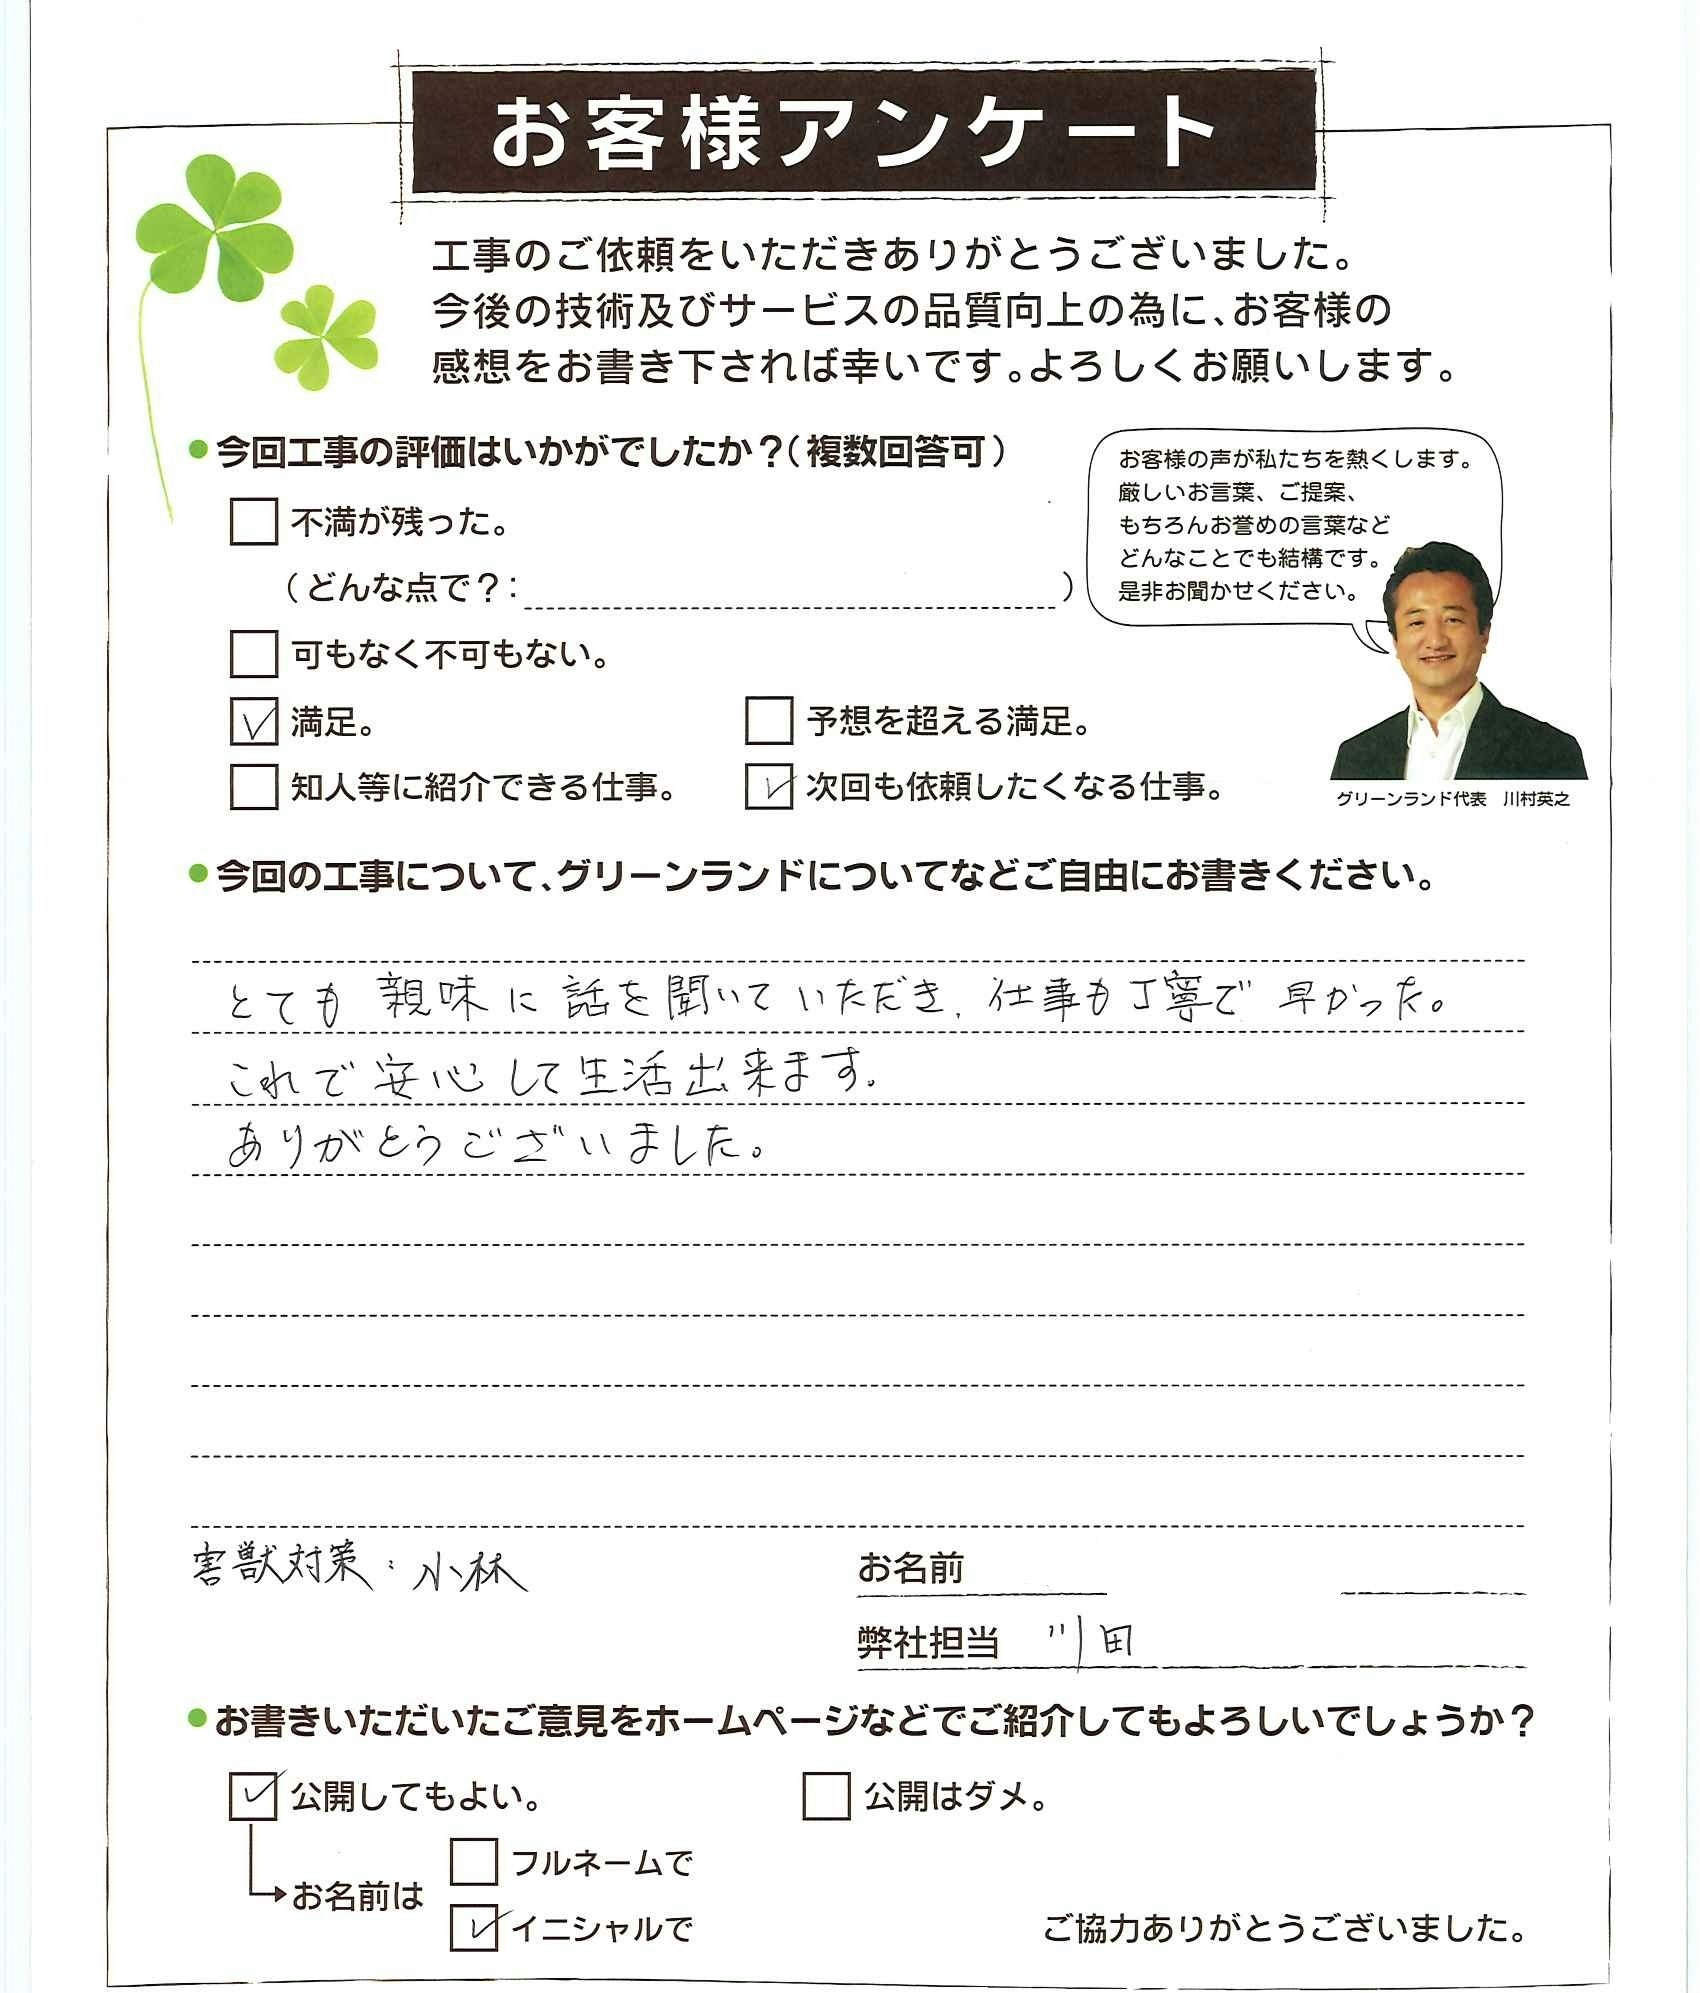 お客様アンケート
工事のご依頼をいただきありがとうございました。
今後の技術及びサービスの品質向上の為に、お客様の
感想をお書き下されば幸いです。よろしくお願いします。
●今回工事の評価はいかがでしたか？（複数回答可）
お客様の声が私たちを熱くします。
厳しいお言葉、ご提案、
もちろんお誉めの言葉など
どんなことでも結構です。
是非お聞かせください。
不満が残った。
（どんな点で？：　）
可もなく不可もない。
満足。
予想を超える満足。
知人等に紹介できる仕事。
次回も依頼したくなる仕事。
グリーンランド代表　川村英之
●今回の工事について、グリーンランドについてなどご自由にお書きください。
とても親味に話を聞いていただき、仕事も丁寧で早かった。
これで安心して生活出来ます。
ありがとうございました。
害獣対策：小林
お名前
弊社担当　川田
●お書きいただいたご意見をホームページなどでご紹介してもよろしいでしょうか？
公開してもよい。
公開はダメ。
お名前は
フルネームで
イニシャルで
ご協力ありがとうございました。